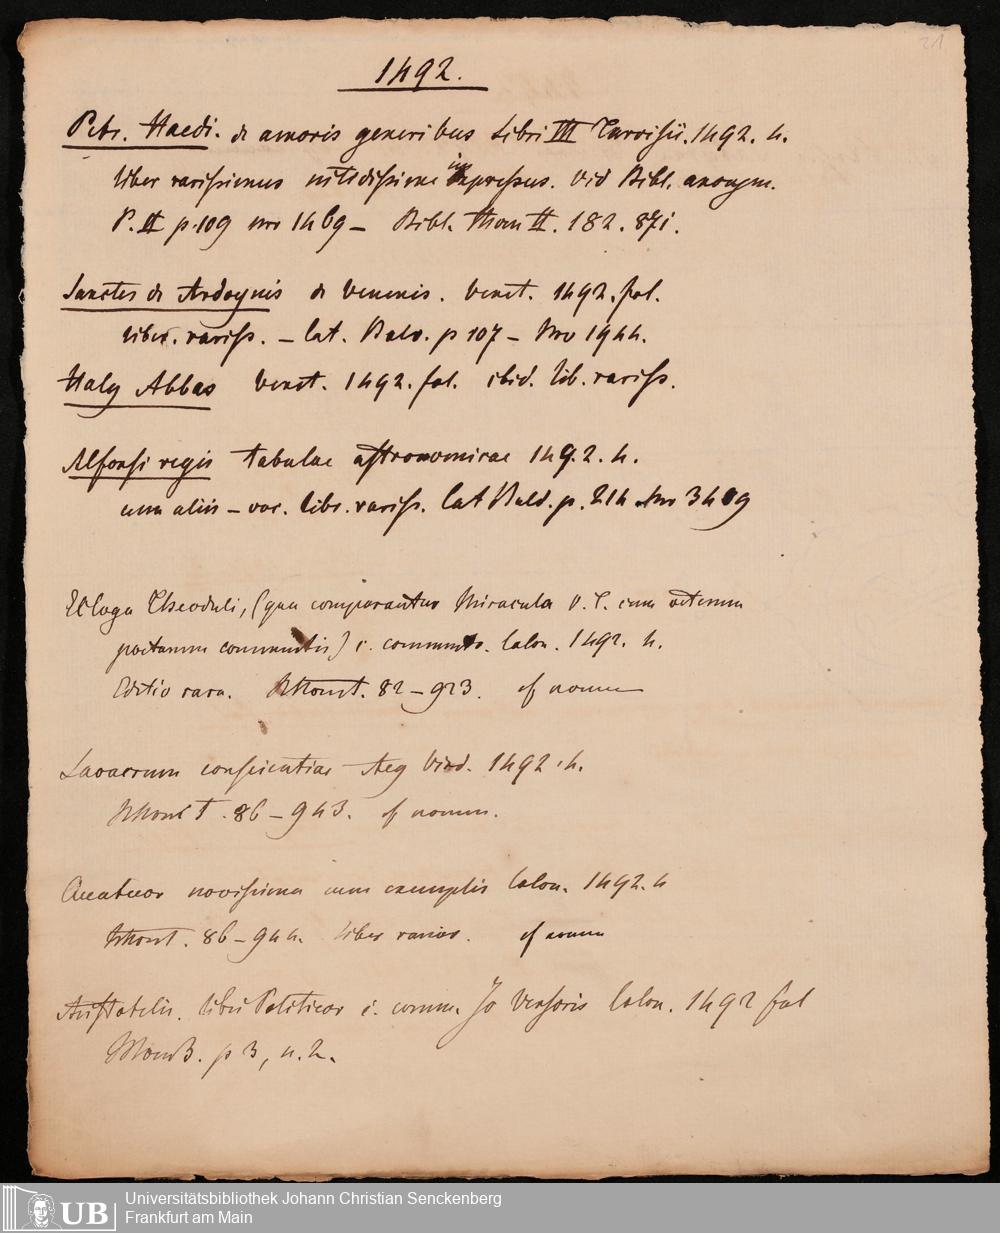 21
1492.
Petr. Haedi. de amoris generibus Libri III Tarvisii. 1492. 4.
liber rarissimus nitidissime impressus. vid Bibl. anonym.
P. II p. 109 nro 1469 – Bibl. Thom II. 182. 871.
Sanctes de Ardoynis de Venenis. Venet. 1492. fol.
liber. rariss. – Cat. Bald. p 107 – Nro 1944.
Haly Abbas Venet. 1492. fol. ibid. lib. rariss.
Alfonsi regis tabulae astronomicae 1492. 4.
cum aliis – libr. rariss. Cat Bald. p. 214 Nro
Ecloga Theoduli, (qua comparantur Miracula V. T. cum veterum
poetarum commentis) c. comment. Colon. 1492. 4.
Editio rara. 82 – 923.
Lavacrum conscientiae 1492. 4.
86 – 943.
Quatuor novissima cum exemplis Colon. 1492. 4
86 – 944. liber rarior.
Aristotelis. libri Politicor c. comm. Jo Versoris Colon. 1492 fol
p 3, n. 2.
Universitätsbibliothek Johann Christian Senckenberg
Frankfurt am Main
UB